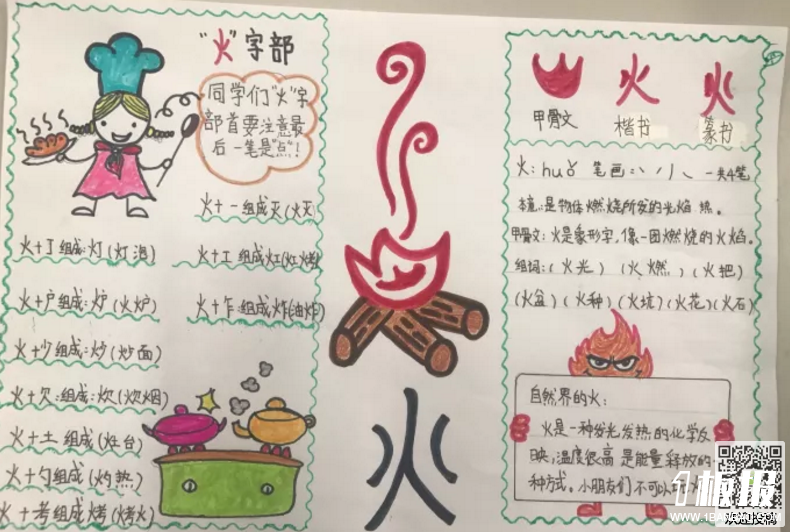 "火"字部
同学们"火"字
部首要注意最
后一笔是"点"!
火+一组成灭(火灭)
火+丁组成:灯(灯泡)
火+工组成灶(灶烤)
火+户组成:炉(火炉)
火+乍:组成炸(油炸)
火+少组成:炒(炒面)
火+欠:组成:炊(炊烟)
火+土 组成(灶台)
火+勺组成(灼热)
火+考组成烤(烤火)
火
火 火
甲骨文 楷书 篆书
火:huǒ 笔画:丶丿丿㇏ 一共4笔
本意:是物体燃烧所发的光焰 热。
甲骨文:火是象形字,像一团燃烧的火焰。
组词:(火光)(火燃)(火把)
(火盆)(火种)(火坑)(火花)(火石)
自然界的火:
火是一种发光发热的化学反
映,温度很高 是能量释放的
种方式。小朋友们不可以
1板报
WWW.1BANBAO.COM